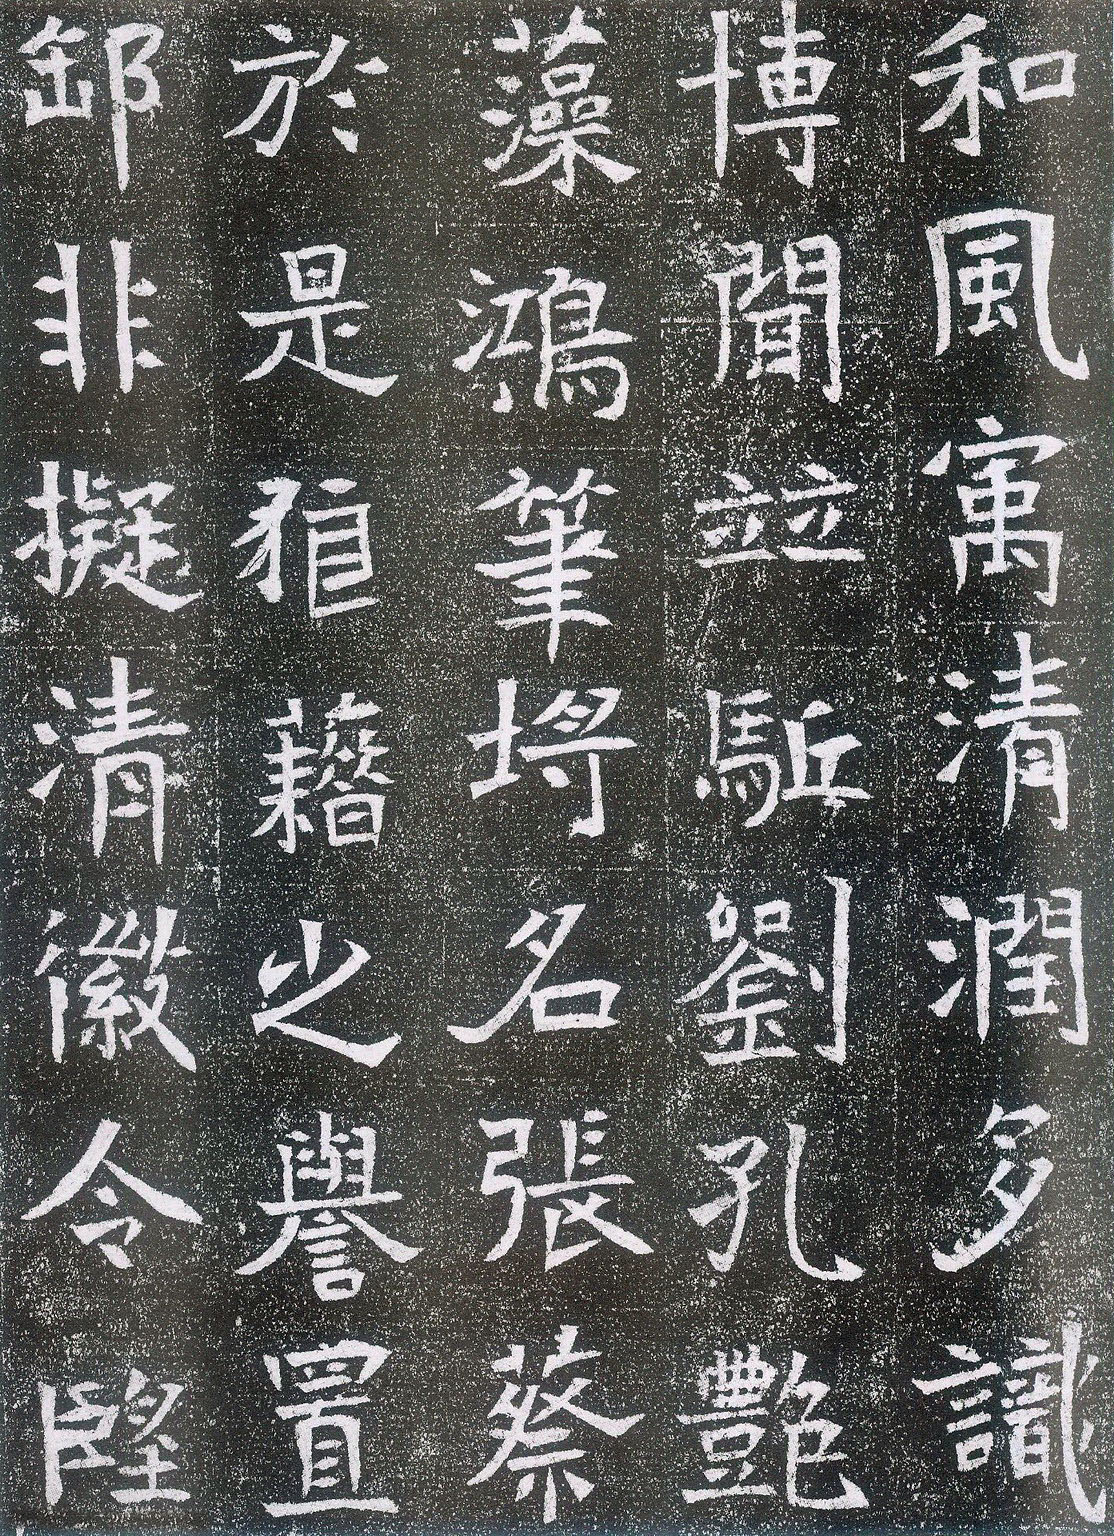 和風寓清潤多識
博聞竝駈劉孔艷
藻鴻筆埒名張蔡
於是藉之譽置
郵非擬清徽令